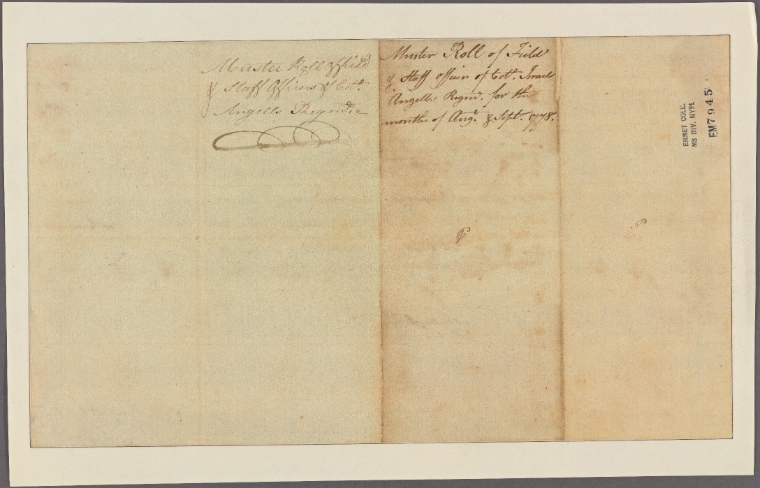 Muster Roll of Field
& Staff Officers of Colo.
Angells Regim
Muster Roll of Field
& Staff officers of Colo. Israel
Angells Regimt. for the
month of Augt. & Sept. 1778.
EMMET COLL.
MS DIV. NYPL
EM7945